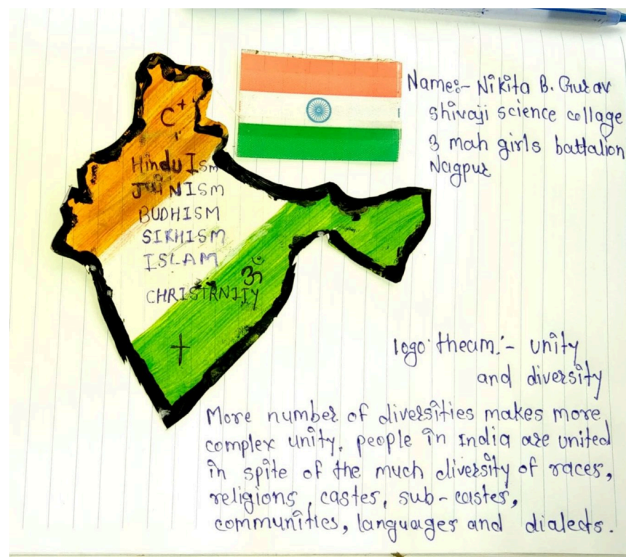 Name:- Nikita B. Gurav
Shivaji science collage
3 mah girls battalion
Nagpur
C+
HinduIsm
JAINISM
BUDHISM
SIKHISM
ISLAM
CHRISTANITY
ॐ
logo theam:- unity
and diversity
More number of diversities makes more
complex unity. people in India are united
in spite of the much diversity of races,
religions, castes, sub-castes,
communities, languages and dialects.